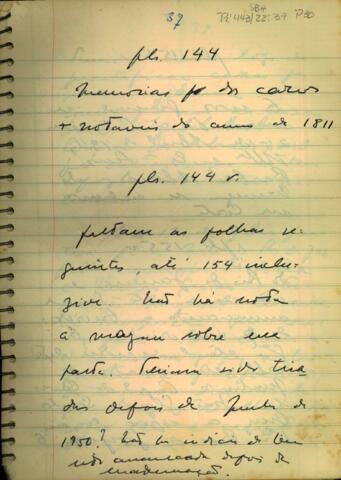 37
SBH
Pi 443/22:39 P30
fls. 144
Memorias dos casos
+ notaveis do anno de 1811
fls. 144 v.
Faltam as folhas se-
guintes, até 154 inclu-
sive. Não há nota
á margem sobre essa
parte. Teriam sido tira-
das depois de Junho de
1950? Não há indicios de terem
sido arrancadas depois da
encadernação.